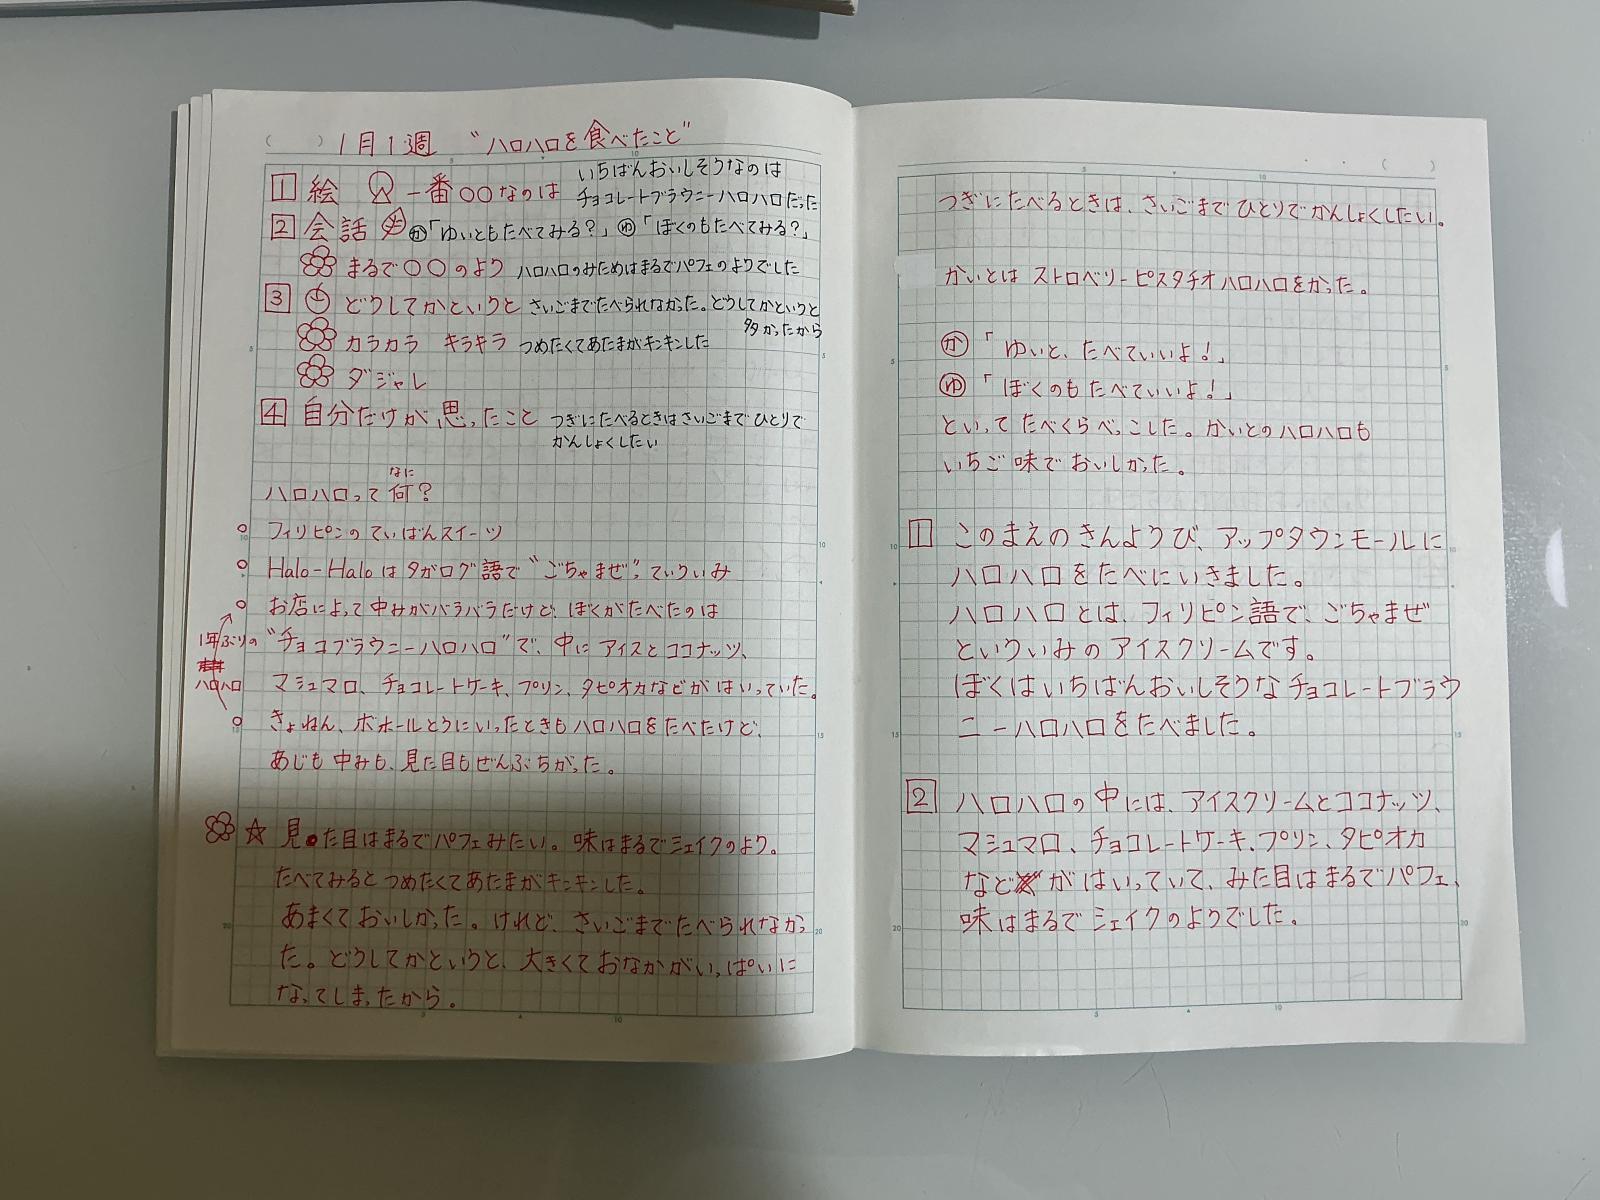 ( ) 1月1週 "ハロハロを食べたこと"
1 絵 一番○○なのは いちばんおいしそうなのは
チョコレートブラウニーハロハロだった
2 会話 か「ゆいともたべてみる?」ゆ「ぼくのもたべてみる?」
まるで○○のよう ハロハロのみためはまるでパフェのようでした
3 どうしてかというと さいごまでたべられなかった。どうしてかというと
多かったから
カラカラ キラキラ つめたくてあたまがキンキンした
ダジャレ
4 自分だけが思ったこと つぎにたべるときはさいごまでひとりで
かんしょくしたい
なに
ハロハロって何?
フィリピンのていばんスイーツ
Halo-Haloはタガログ語で"ごちゃまぜ"っていういみ
お店によって中みがバラバラだけど、ぼくがたべたのは
"チョコブラウニーハロハロ"で、中にアイスとココナッツ、
1年ぶりの
ハロハロ
マシュマロ、チョコレートケーキ、プリン、タピオカなどがはいっていた。
きょねん、ボホールとうにいったときもハロハロをたべたけど、
あじも中みも、見た目もぜんぶちがった。
☆ 見た目はまるでパフェみたい。味はまるでシェイクのよう。
たべてみるとつめたくてあたまがキンキンした。
あまくておいしかった。けれど、さいごまでたべられなかっ
た。どうしてかというと、大きくておなかがいっぱいに
なってしまったから。
( )
つぎにたべるときは、さいごまでひとりでかんしょくしたい。
かいとはストロベリーピスタチオハロハロをかった。
か「ゆいと、たべていいよ!」
ゆ「ぼくのもたべていいよ!」
といってたべくらべっこした。かいとのハロハロも
いちご味でおいしかった。
1 このまえのきんようび、アップタウンモールに
ハロハロをたべにいきました。
ハロハロとは、フィリピン語で、ごちゃまぜ
といういみのアイスクリームです。
ぼくはいちばんおいしそうなチョコレートブラウ
ニーハロハロをたべました。
2 ハロハロの中には、アイスクリームとココナッツ、
マシュマロ、チョコレートケーキ、プリン、タピオカ
などがはいっていて、みた目はまるでパフェ、
味はまるでシェイクのようでした。